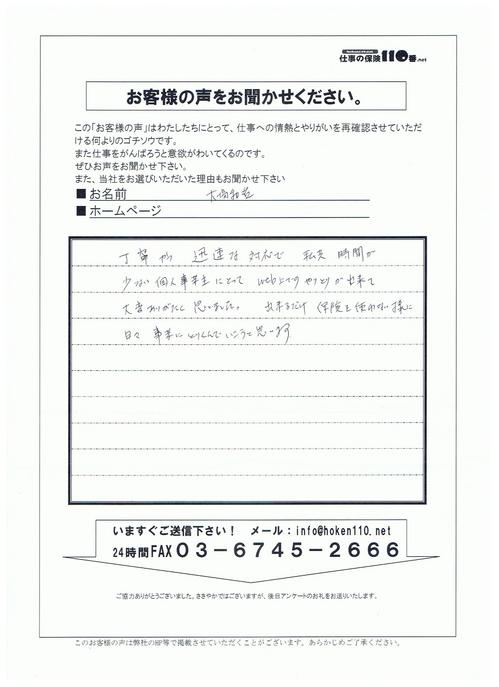 仕事の保険110番.net
お客様の声をお聞かせください。
この「お客様の声」はわたしたちにとって、仕事への情熱とやりがいを再確認させていただ
ける何よりのゴチソウです。
また仕事をがんばろうと意欲がわいてくるのです。
ぜひお声をお聞かせ下さい。
また、当社をお選びいただいた理由もお聞かせ下さい
■お名前
■ホームページ
丁寧かつ 迅速な 対応で 私共 時間が
少ない個人事業主にとって web上でのやりとりが出来て
大変ありがたく思いました。 出来るだけ 保険を使わない様に
日々 事業にとりくんでいこうと思います
いますぐご送信下さい! メール:info@hoken110.net
24時間FAX03-6745-2666
ご協力ありがとうございました。ささやかではございますが、後日アンケートのお礼をお送りいたします。
このお客様の声は弊社のHP等で掲載させていただくことがございます。あらかじめご了承ください。